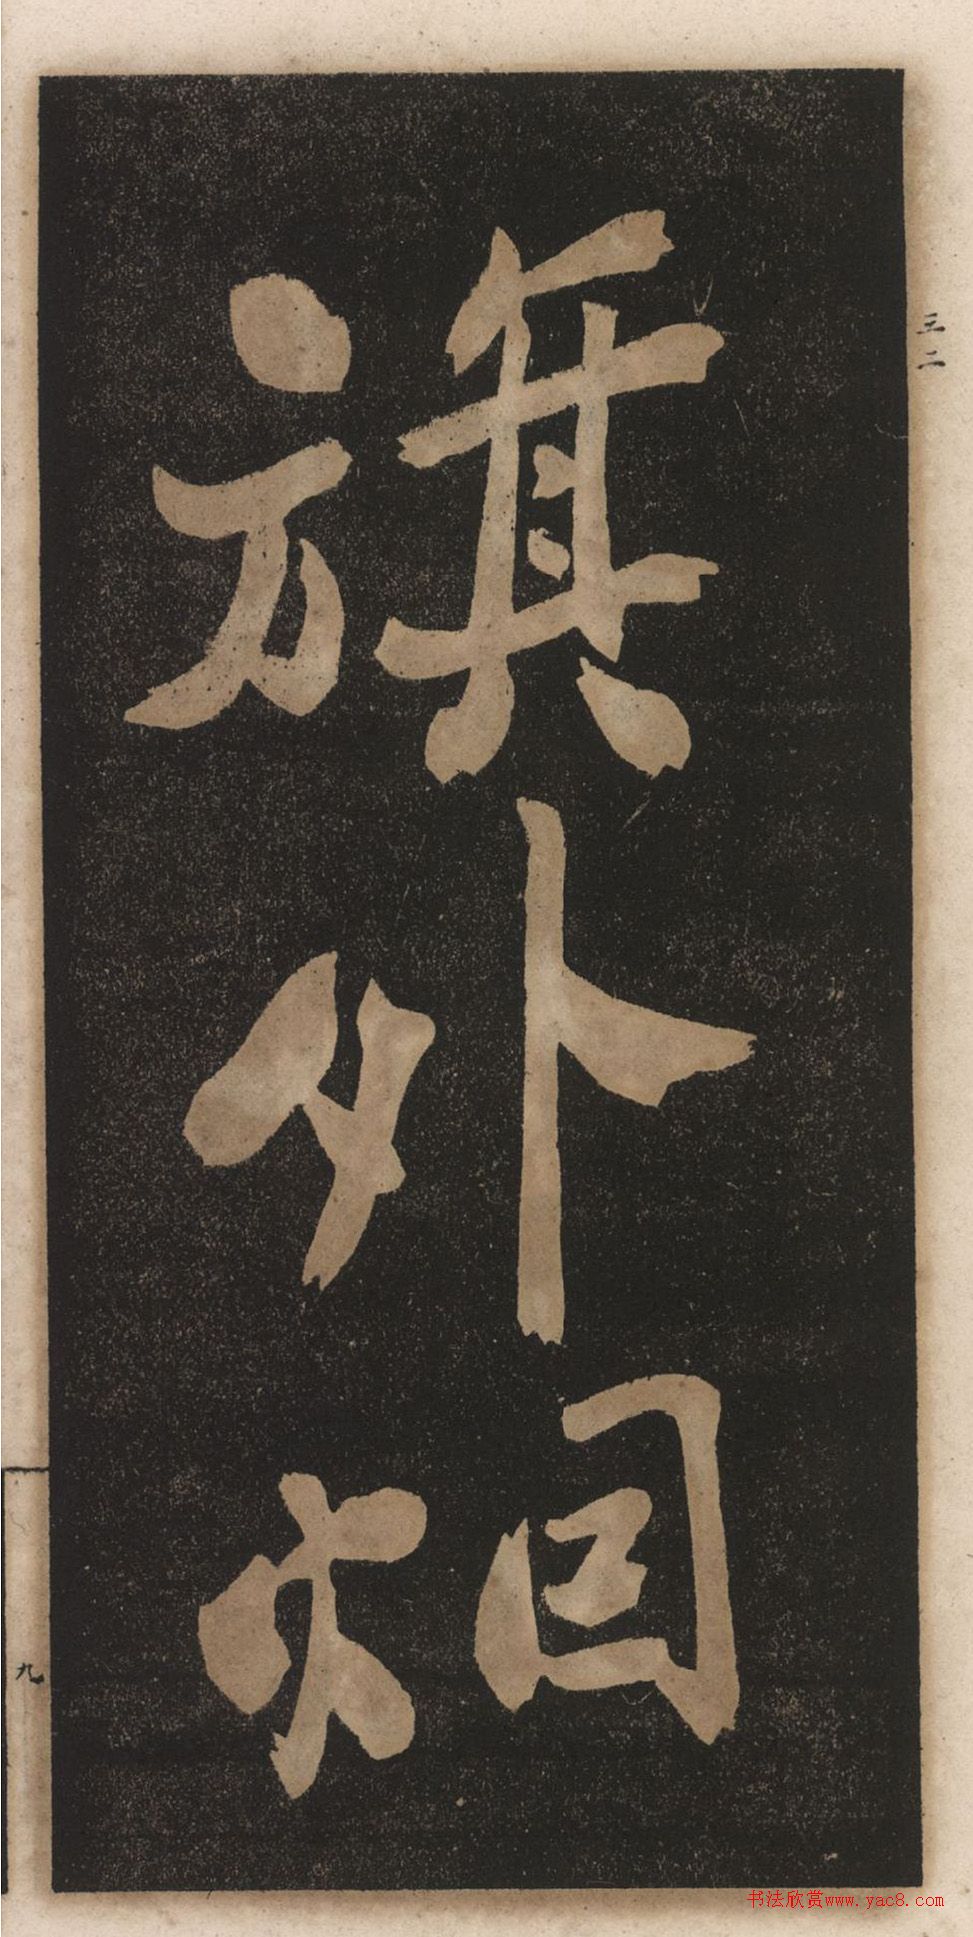 旗外烟
三二
九
书法欣赏www.yac8.com